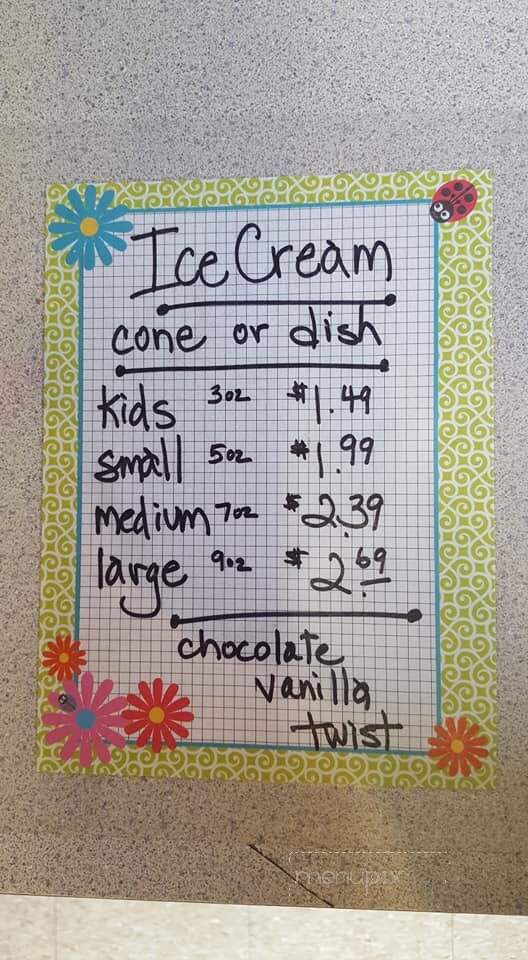 Ice Cream
cone or dish
kids 3oz $1.49
small 5oz $1.99
medium 7oz $2.39
large 9oz $2.69
chocolate
vanilla
twist
menupix